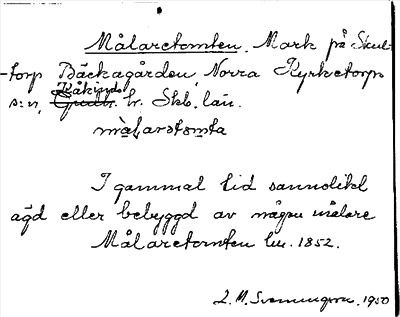 Målaretomten. Mark på Skul-
torp Bäckagården Norra Kyrketorp
s:n, Kåkinds hr. Skb. län.
målarstomta
I gammal tid sannolikt
ägd eller bebyggd av någon målare
Målaretomten lm. 1852.
L. M. Svenungsson. 1950